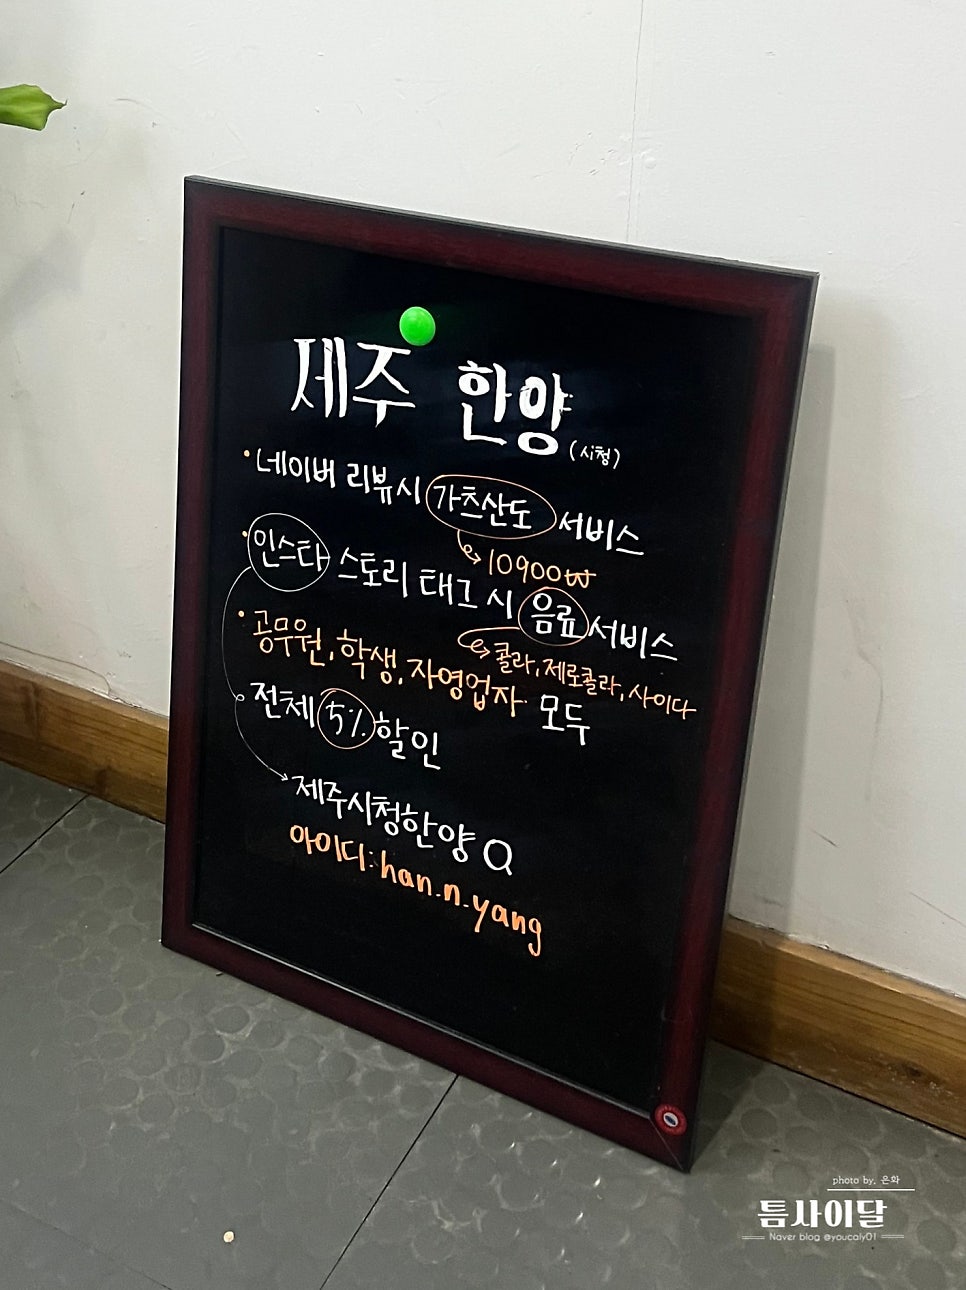 제주 한양 (시청)
• 네이버 리뷰시 가츠산도 서비스
10900₩
• 인스타 스토리 태그 시 음료 서비스
콜라, 제로콜라, 사이다
• 공무원, 학생, 자영업자 모두
전체 5% 할인
제주시청한양 Q
아이디: han_n_yang
photo by. 은화
틈사이달
Naver blog @youcaly01